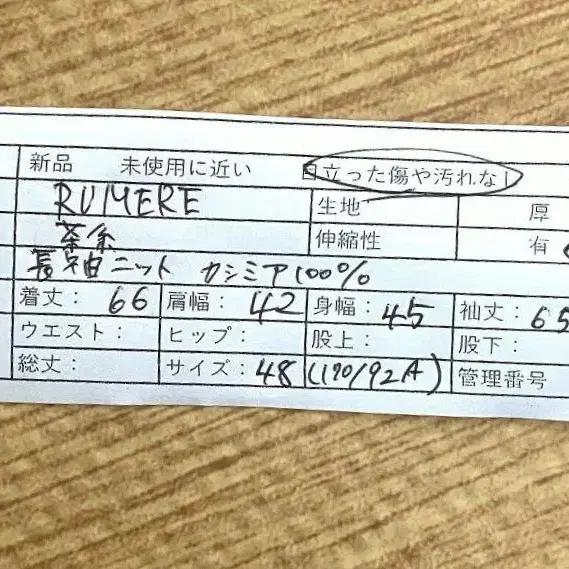 新品 未使用に近い 目立った傷や汚れなし
RUMERE 生地 厚
茶系 伸縮性 有
長袖ニット カシミア100%
着丈: 66 肩幅: 42 身幅: 45 袖丈: 65
ウエスト: ヒップ: 股上: 股下:
総丈: サイズ: 48 (170/92A) 管理番号